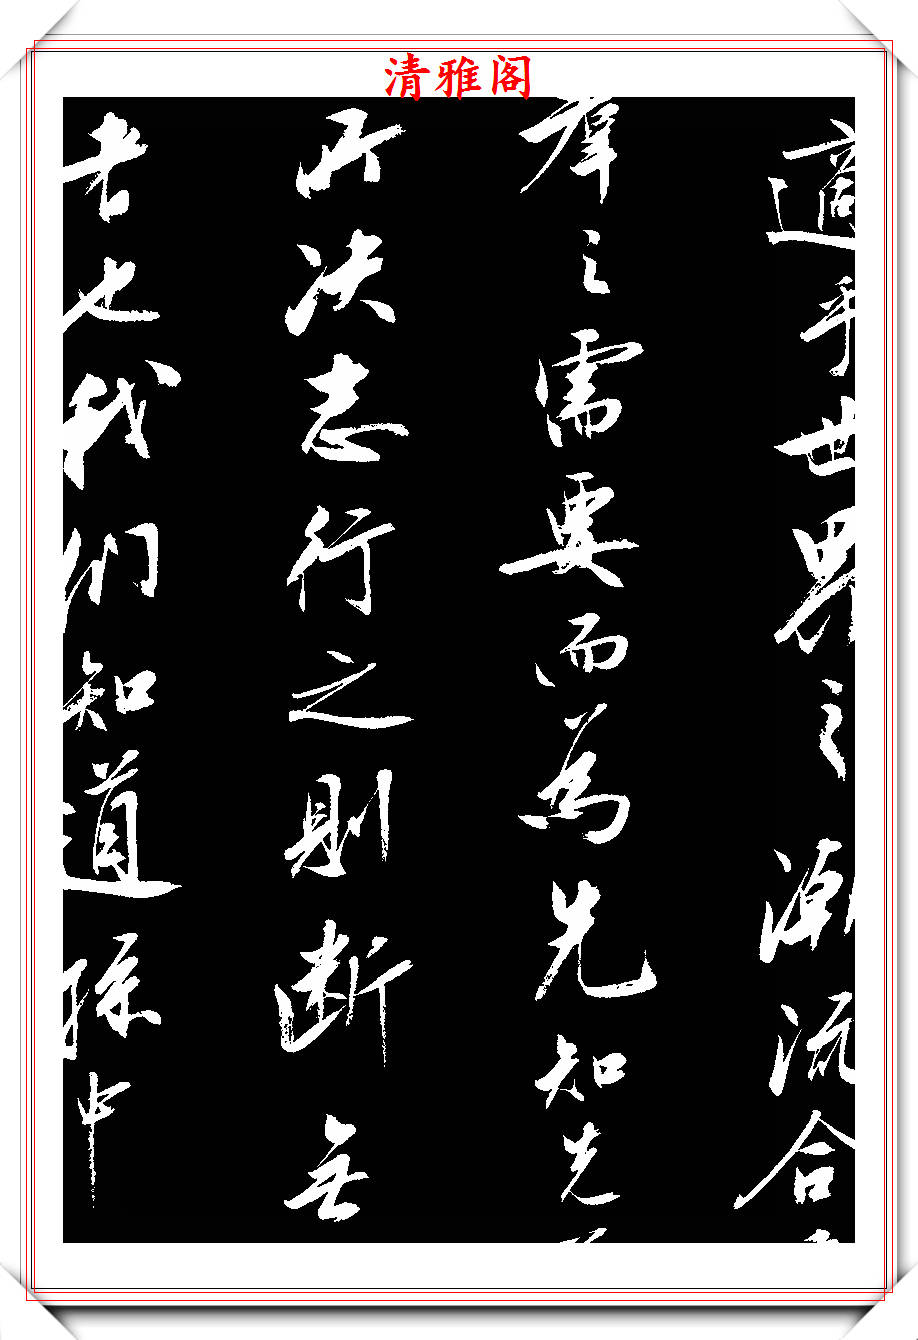 清雅阁
適乎世界之潮流合
羣之需要而為先知先
所決志行之則断無
者也我們知道孫中